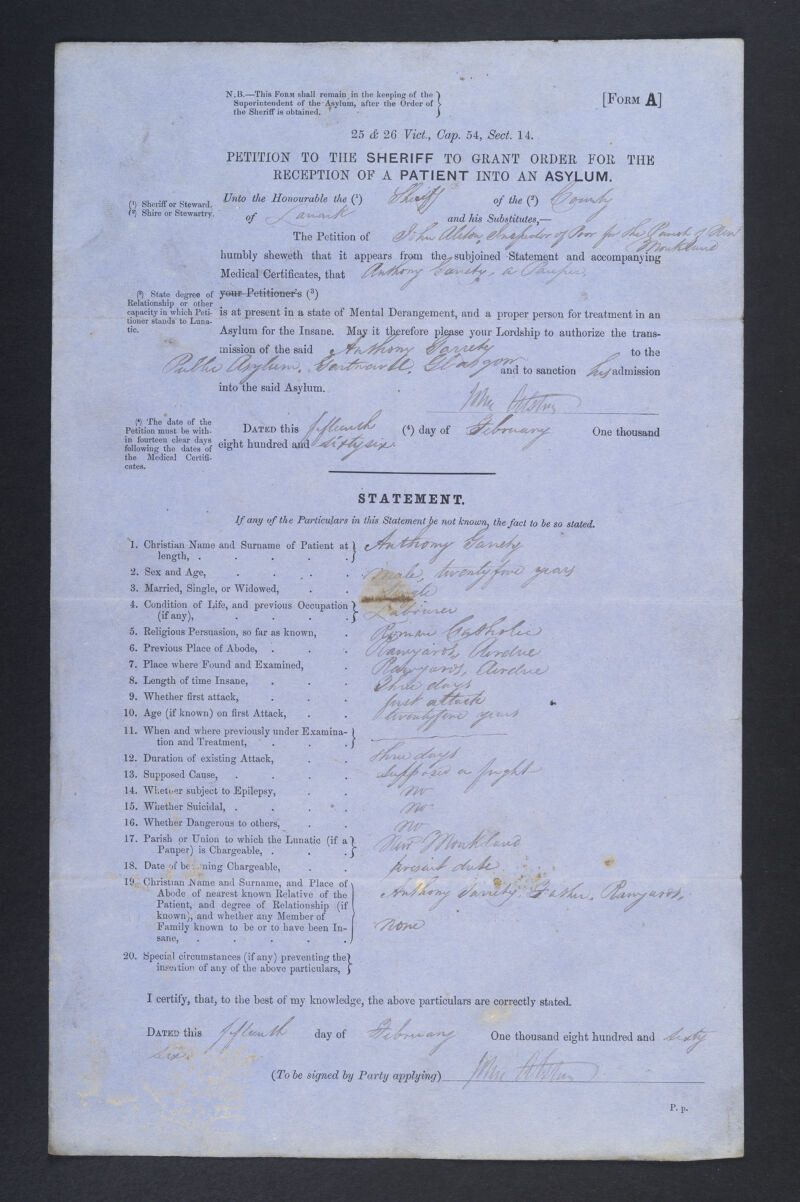 N.B.—This Form shall remain in the keeping of the
Superintendent of the Asylum, after the Order of
the Sheriff is obtained.
[Form A]
25 & 26 Vict., Cap. 54, Sect. 14.
PETITION TO THE SHERIFF TO GRANT ORDER FOR THE
RECEPTION OF A PATIENT INTO AN ASYLUM.
(1) Sheriff or Steward.
(2) Shire or Stewartry.
Unto the Honourable the (1) Sheriff of the (2) County
of Lanark and his Substitutes,—
The Petition of John Alston, Inspector of Poor for the Parish of New
Monkland
humbly sheweth that it appears from the subjoined Statement and accompanying
Medical Certificates, that Anthony Garrety, a Pauper
(3) State degree of
Relationship or other
capacity in which Peti-
tioner stands to Luna-
tic.
your Petitioner's (3)
is at present in a state of Mental Derangement, and a proper person for treatment in an
Asylum for the Insane. May it therefore please your Lordship to authorize the trans-
mission of the said Anthony Garrety to the
Public Asylum, Gartnavel, Glasgow and to sanction his admission
into the said Asylum.
John Alston
(4) The date of the
Petition must be with-
in fourteen clear days
following the dates of
the Medical Certifi-
cates.
Dated this fifteenth (4) day of February One thousand
eight hundred and sixty six
STATEMENT.
If any of the Particulars in this Statement be not known, the fact to be so stated.
1. Christian Name and Surname of Patient at
length, . . . . . Anthony Garrety
2. Sex and Age, . . . . Male, twenty five years
3. Married, Single, or Widowed, . . Single
4. Condition of Life, and previous Occupation
(if any), . . . . Labourer
5. Religious Persuasion, so far as known, . Roman Catholic
6. Previous Place of Abode, . . . Rawyards, Airdrie
7. Place where Found and Examined, . Rawyards, Airdrie
8. Length of time Insane, . . . Three days
9. Whether first attack, . . . first attack
10. Age (if known) on first Attack, . . twenty five years
11. When and where previously under Examina-
tion and Treatment, . . .
12. Duration of existing Attack, . . three days
13. Supposed Cause, . . . . Supposed a fright
14. Whether subject to Epilepsy, . . no
15. Whether Suicidal, . . . . no
16. Whether Dangerous to others, . . no
17. Parish or Union to which the Lunatic (if a
Pauper) is Chargeable, . . . . New Monkland
18. Date of becoming Chargeable, . . present date
19. Christian Name and Surname, and Place of
Abode of nearest known Relative of the
Patient, and degree of Relationship (if
known), and whether any Member of
Family known to be or to have been In-
sane, . . . . .
Anthony Garrety, Father, Rawyards,
none
20. Special circumstances (if any) preventing the
insertion of any of the above particulars,
I certify, that, to the best of my knowledge, the above particulars are correctly stated.
Dated this fifteenth day of February One thousand eight hundred and sixty
six
(To be signed by Party applying) John Alston
P. p.